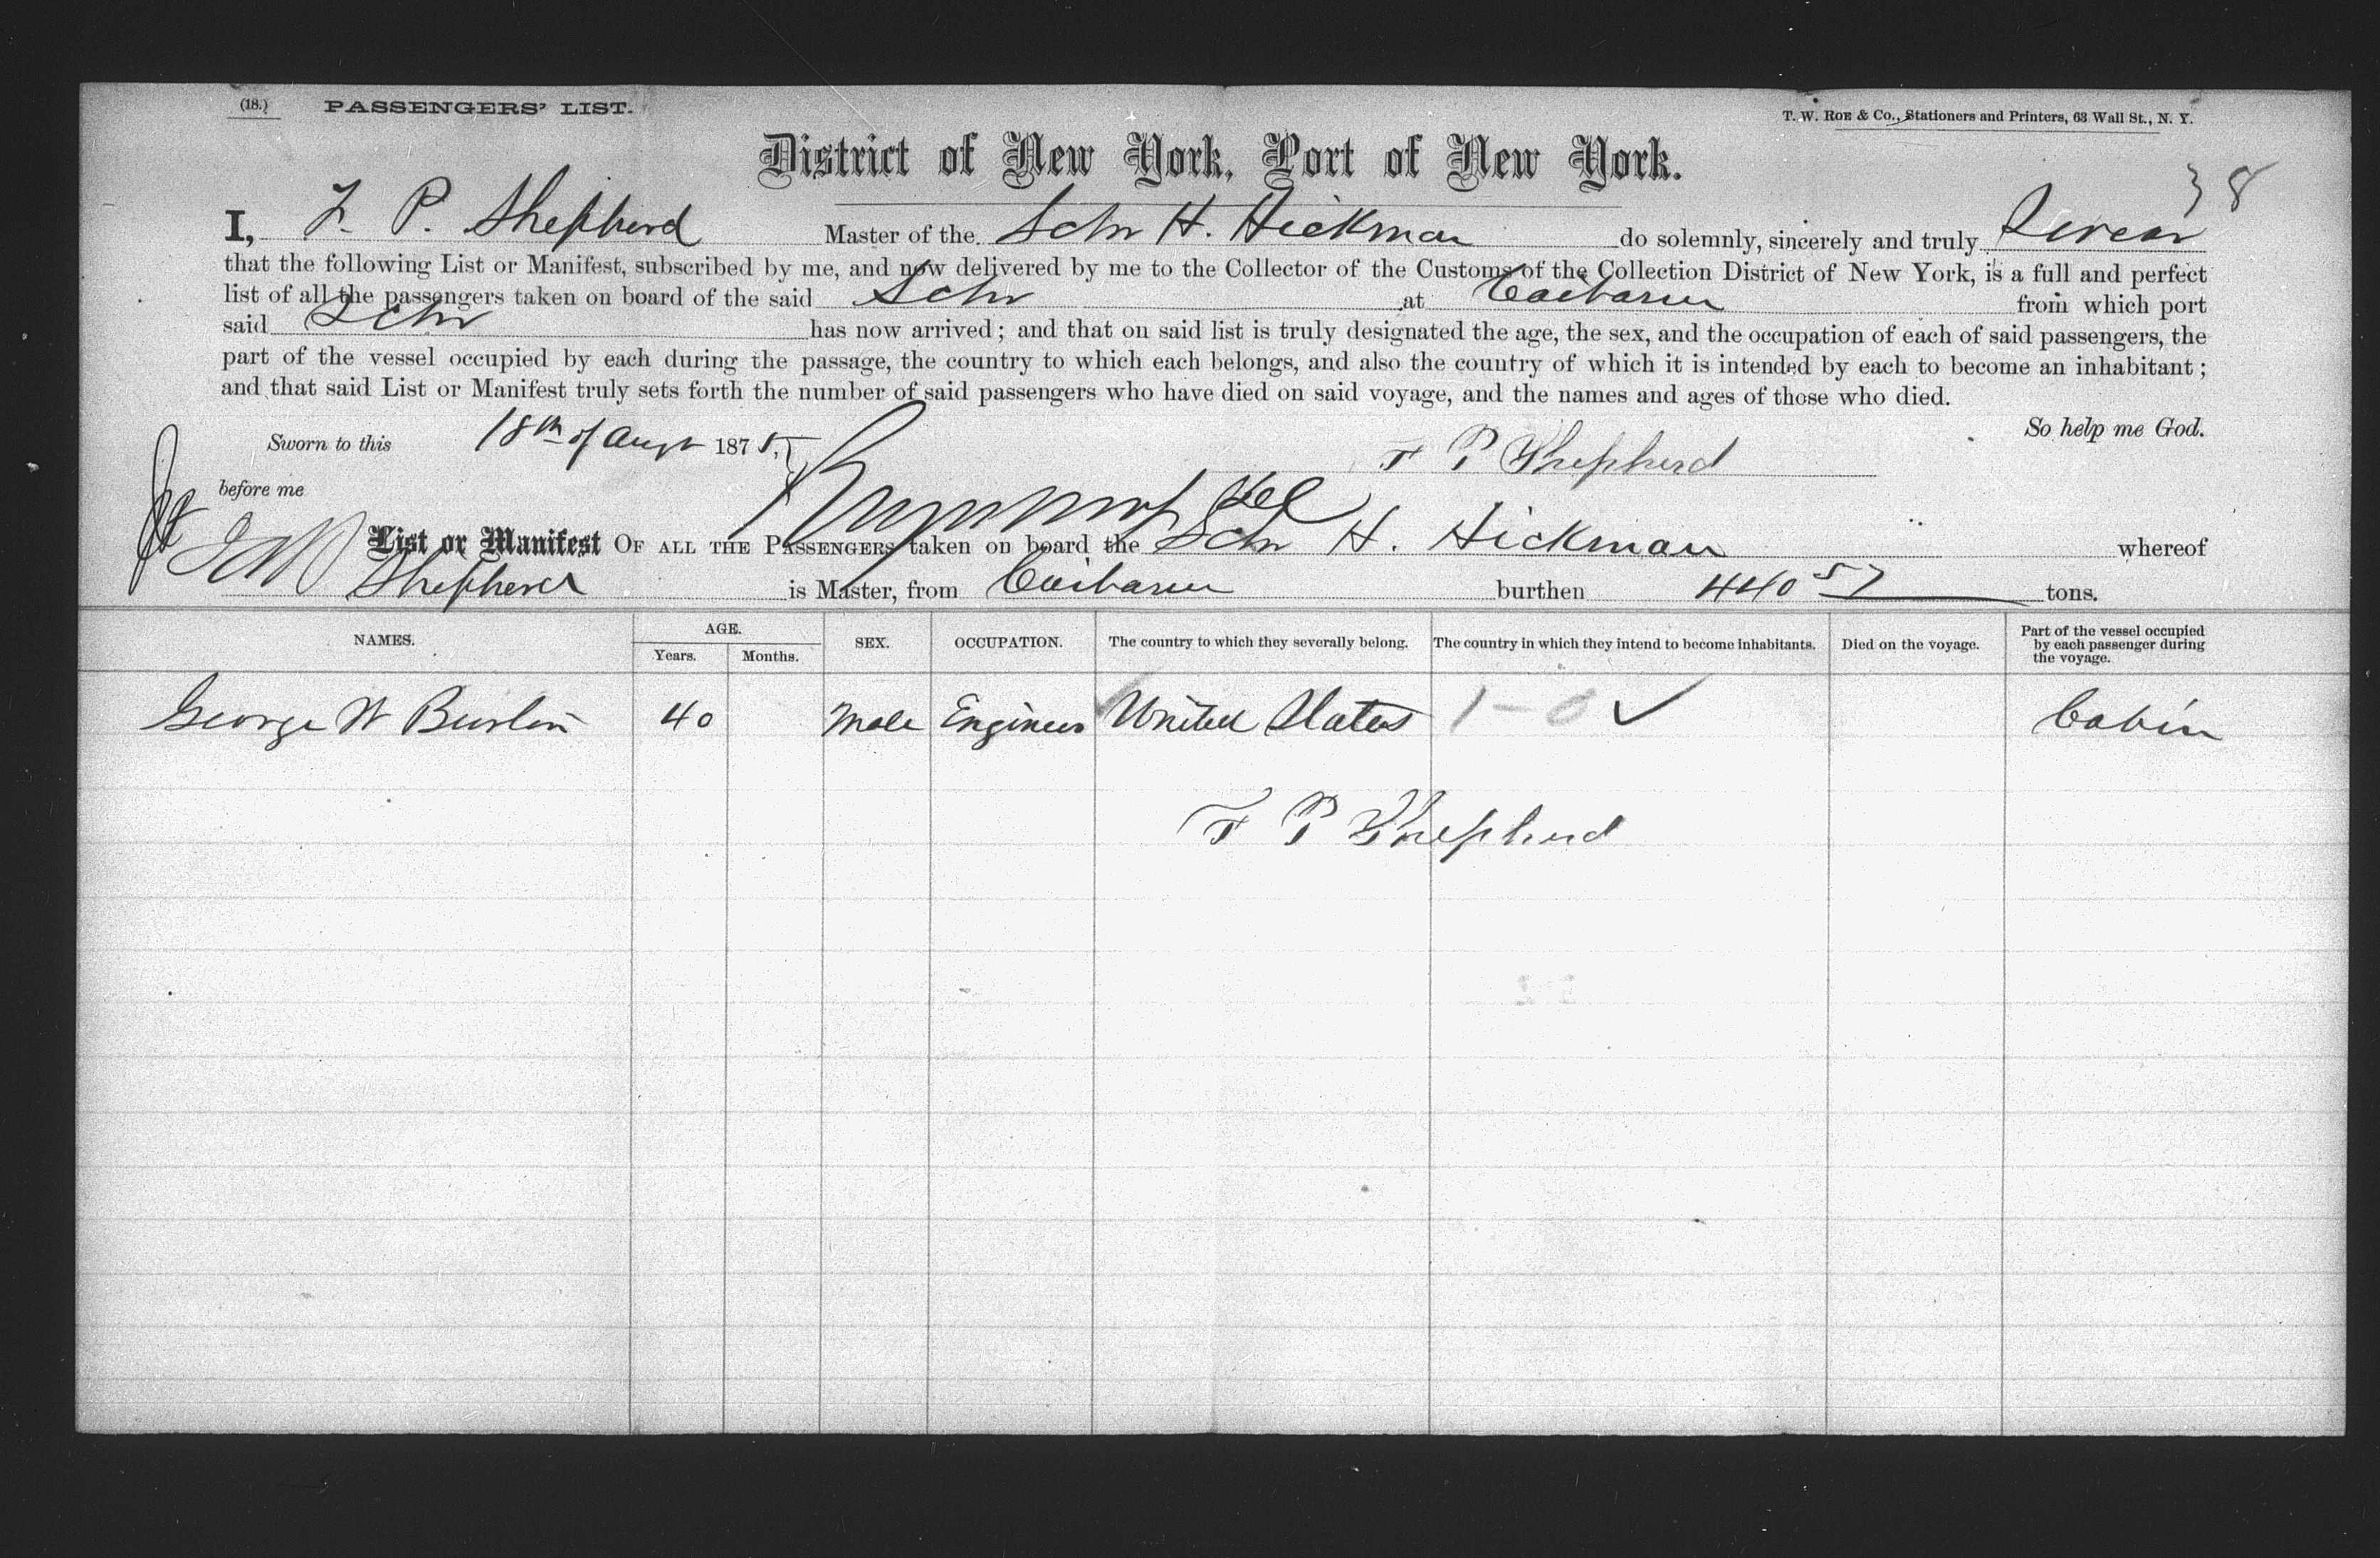 (18.) PASSENGERS' LIST. T. W. ROE & Co., Stationers and Printers, 63 Wall St., N. Y.
District of New York, Port of New York.
38
I, F. P. Shepherd Master of the Schr H. Hickman do solemnly, sincerely and truly Swear
that the following List or Manifest, subscribed by me, and now delivered by me to the Collector of the Customs of the Collection District of New York, is a full and perfect
list of all the passengers taken on board of the said Schr at Caibarien from which port
said Schr has now arrived; and that on said list is truly designated the age, the sex, and the occupation of each of said passengers, the
part of the vessel occupied by each during the passage, the country to which each belongs, and also the country of which it is intended by each to become an inhabitant;
and that said List or Manifest truly sets forth the number of said passengers who have died on said voyage, and the names and ages of those who died.
So help me God.
Sworn to this 18th of Augt 1875, F P Shepherd
before me
List or Manifest OF ALL THE PASSENGERS taken on board the Schr H. Hickman whereof
Shepherd is Master, from Caibarien burthen 440 57 tons.
NAMES. AGE. Years. Months. SEX. OCCUPATION. The country to which they severally belong. The country in which they intend to become inhabitants. Died on the voyage. Part of the vessel occupied by each passenger during the voyage.
George W Burton 40 Male Engineer United States 1-0 ✓ Cabin
F P Shepherd